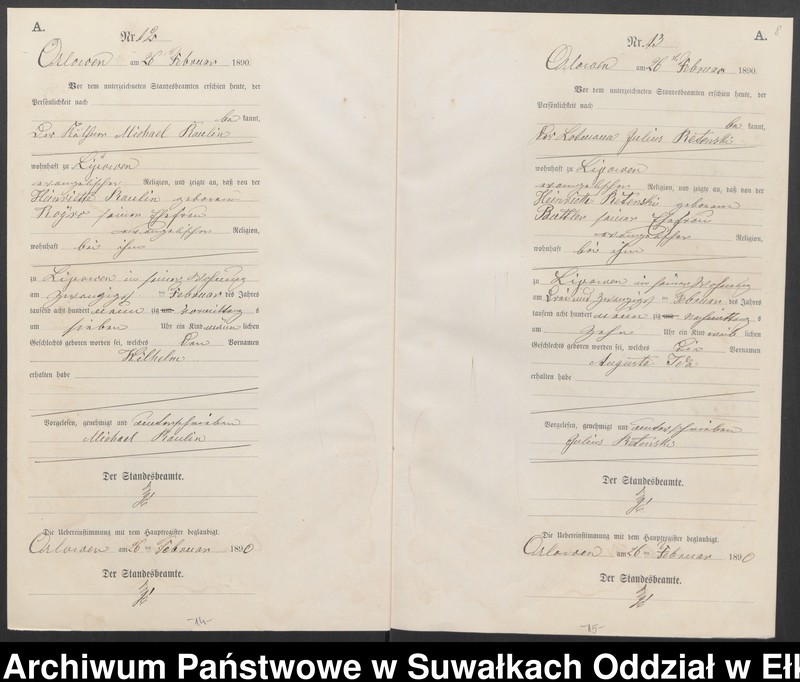 A.
Nr. 12
Orlowen am 26 Februar 1890.
Vor dem unterzeichneten Standesbeamten erschien heute, der
Persönlichkeit nach
be kannt,
Der Michael Raulin
wohnhaft zu Lipowen
evangelischer Religion, und zeigte an, daß von der
Henriette Raulin geborenen
seiner Ehefrau
evangelischer Religion,
wohnhaft bei ihm
zu Lipowen in seiner Wohnung
am zwanzigst en Februar des Jahres
tausend acht hundert neunzig Vormittag s
um sieben Uhr ein Kind männ lichen
Geschlechts geboren worden sei, welches den Vornamen
Wilhelm
erhalten habe
Vorgelesen, genehmigt und unterschrieben
Michael Raulin
Der Standesbeamte.
Die Uebereinstimmung mit dem Hauptregister beglaubigt.
Orlowen am 26 ten Februar 1890
Der Standesbeamte.
-14-
8
A.
Nr. 13
Orlowen am 26 ten Februar 1890.
Vor dem unterzeichneten Standesbeamten erschien heute, der
Persönlichkeit nach
be kannt,
Der Losmann Julius Retonski
wohnhaft zu Lipowen
evangelischer Religion, und zeigte an, daß von der
Henriette Retonski geborenen
seiner Ehefrau
evangelischer Religion,
wohnhaft bei ihm
zu Lipowen in seiner Wohnung
am drei und zwanzigst en Februar des Jahres
tausend acht hundert neunzig Nachmittag s
um zehn Uhr ein Kind weib lichen
Geschlechts geboren worden sei, welches die Vornamen
Auguste Ida
erhalten habe
Vorgelesen, genehmigt und unterschrieben
Julius Retonski
Der Standesbeamte.
Die Uebereinstimmung mit dem Hauptregister beglaubigt.
Orlowen am 26 ten Februar 1890
Der Standesbeamte.
-15-
Archiwum Państwowe w Suwałkach Oddział w Ełk